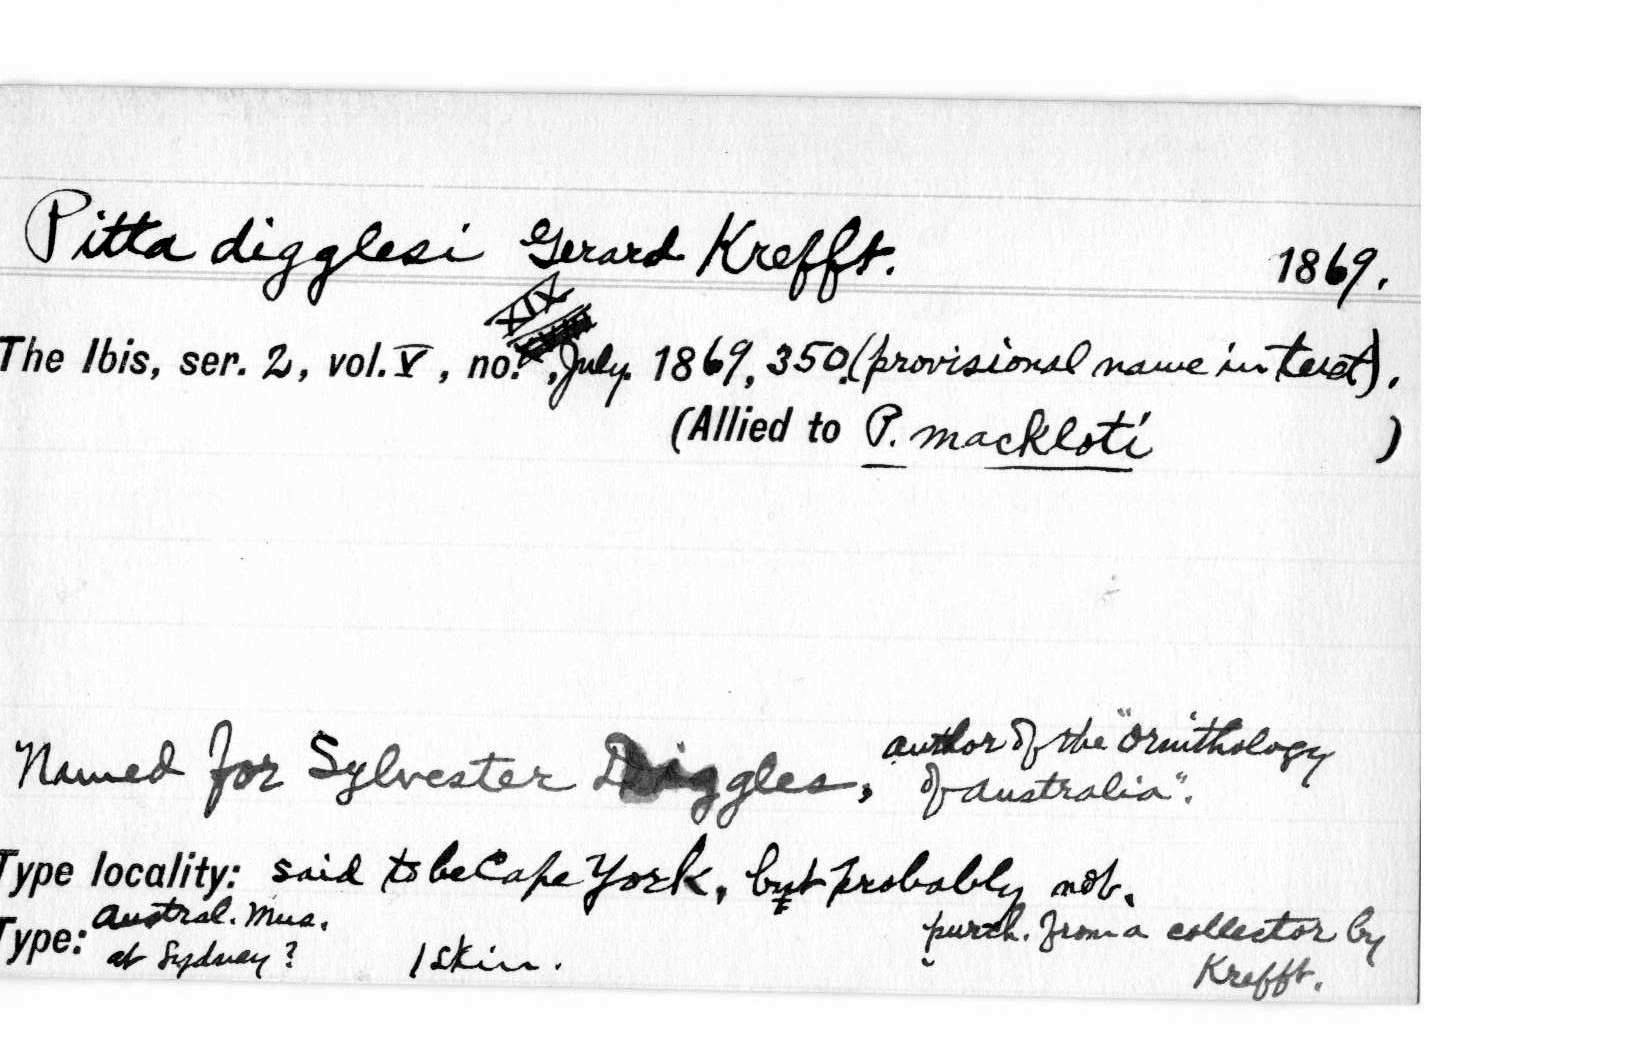 Pitta digglesi Gerard Krefft. 1869.
XIX
The Ibis, ser. 2, vol. V, no. , July. 1869, 350. (provisional name in text).
(Allied to P. mackloti )
Named for Sylvester Diggles, author of the "Ornithology
of Australia".
Type locality: said to be Cape York, but probably not.
Type: Austral. Mus.
at Sydney? 1 skin. purch. from a collector by
Krefft.